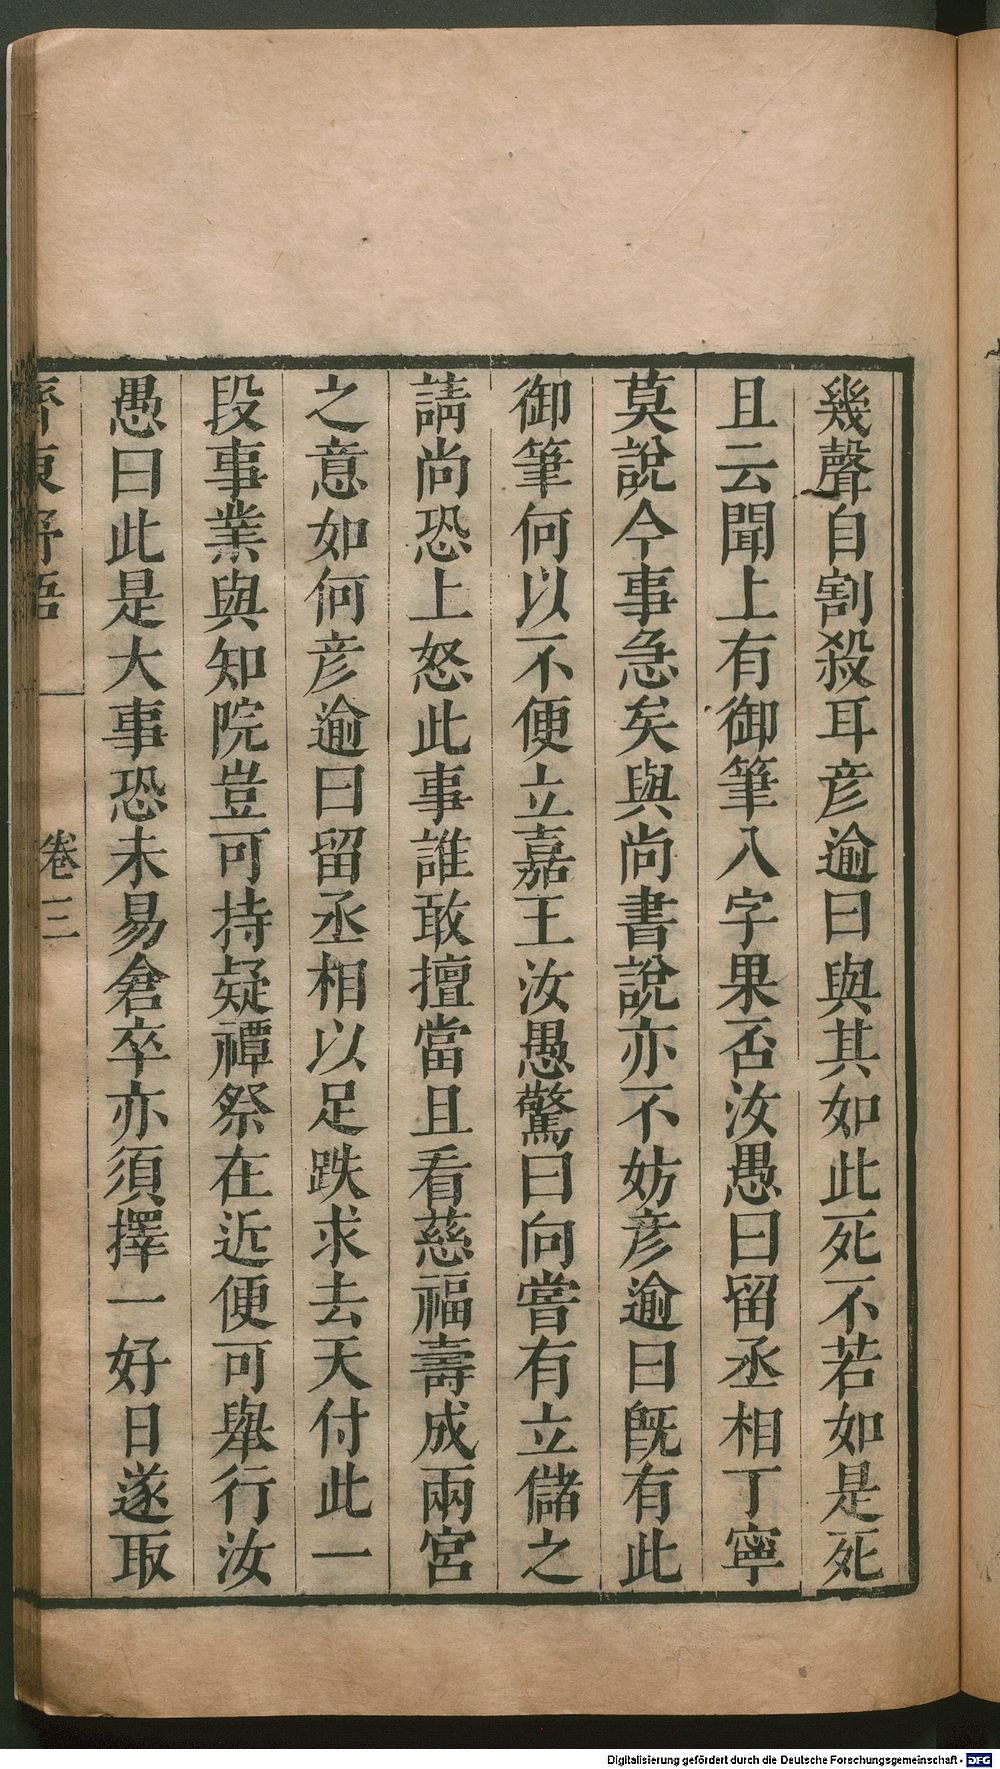 幾聲自割殺耳彦逾曰與其如此死不若如是死
且云聞上有御筆八字果否汝愚曰留丞相丁寧
莫說今事急矣與尚書說亦不妨彦逾曰旣有此
御筆何以不便立嘉王汝愚驚曰向嘗有立儲之
請尚恐上怒此事誰敢擅當且看慈福壽成兩宮
之意如何彦逾曰留丞相以足跌求去天付此一
段事業與知院豈可持疑禫祭在近便可舉行汝
愚曰此是大事恐未易倉卒亦須擇一好日遂取
齊東野語 卷三
Digitalisierung gefördert durch die Deutsche Forschungsgemeinschaft - DFG